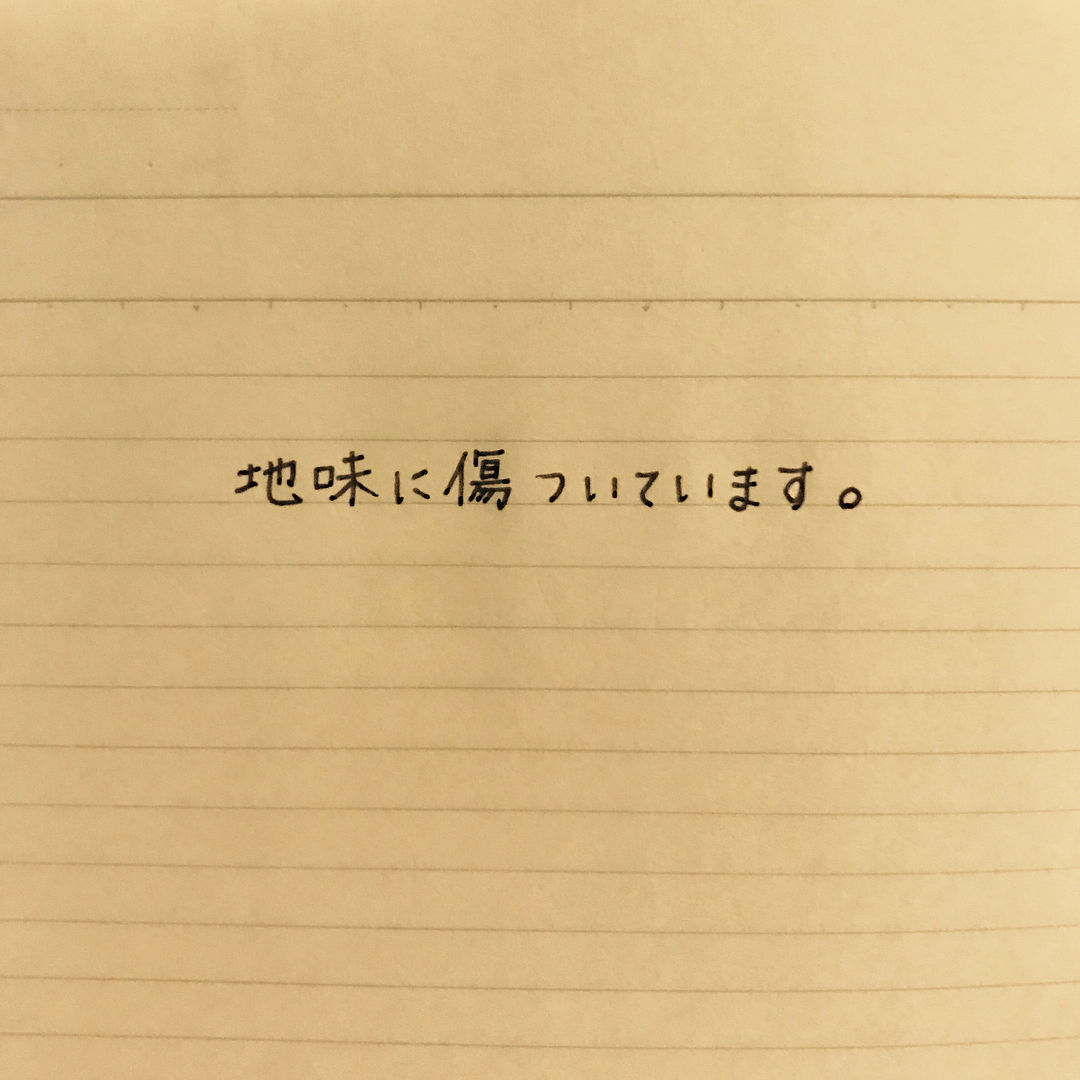 地味に傷ついています。